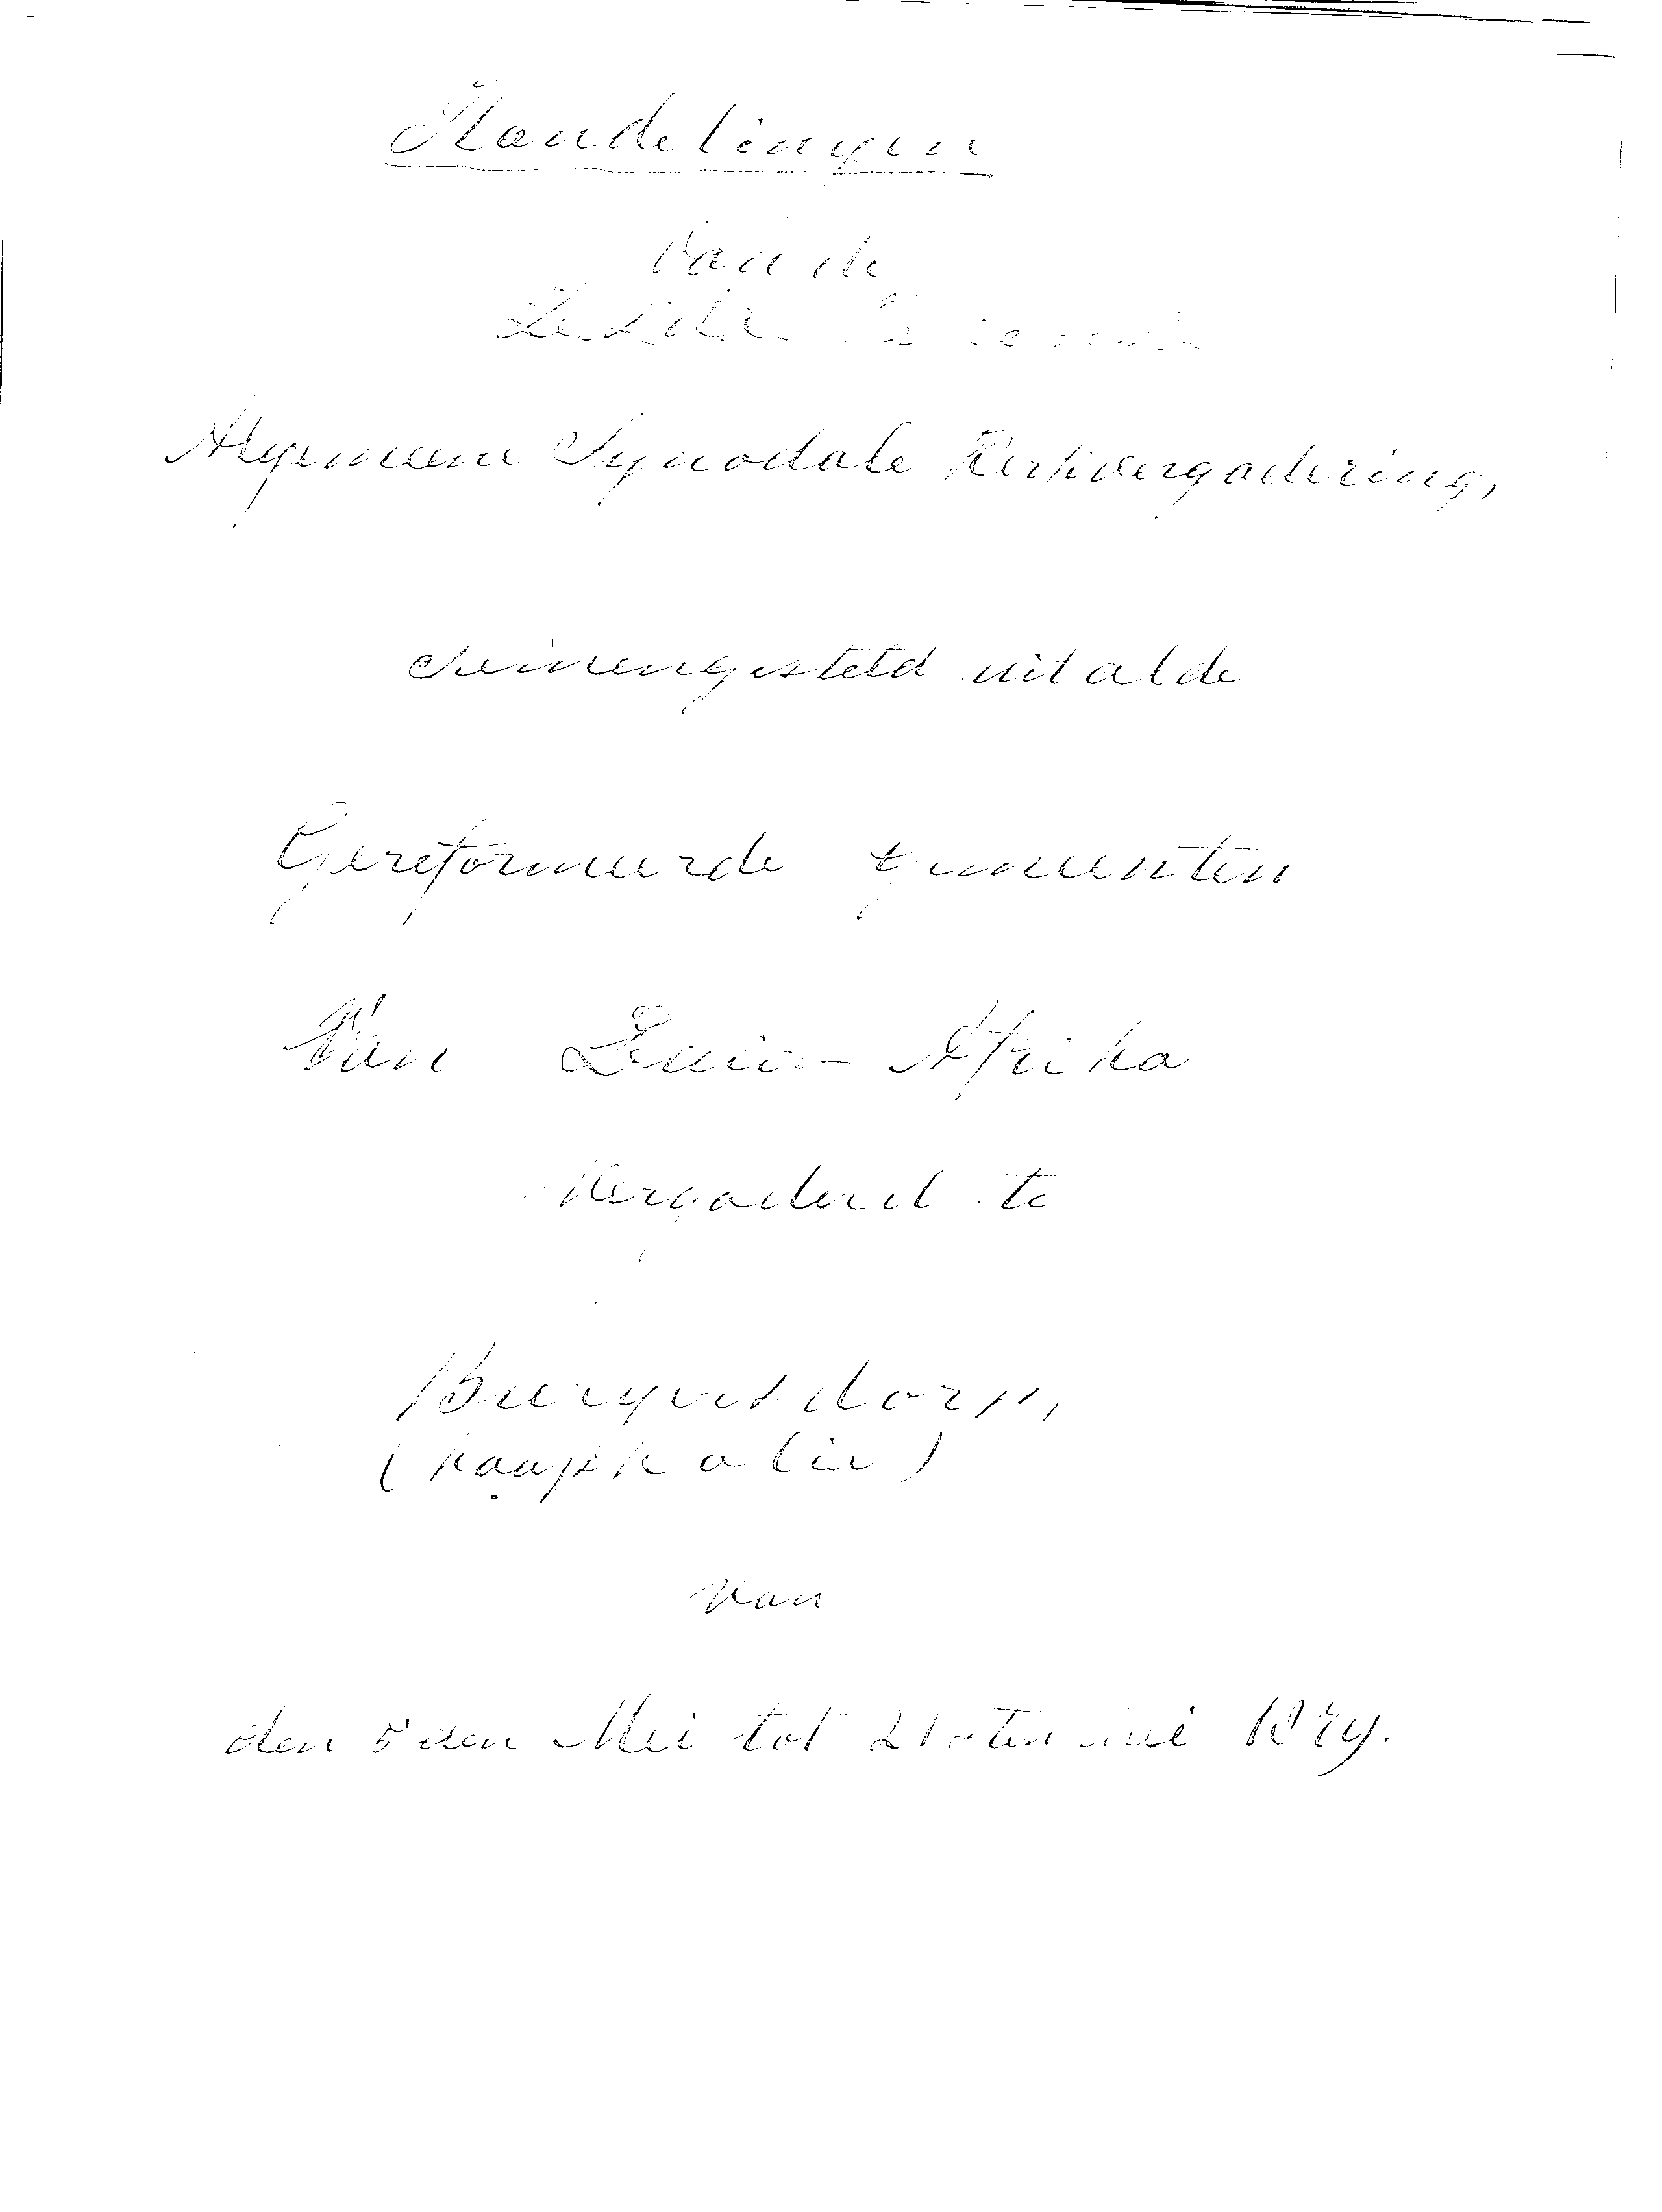 Handelingen
Van de
Algemeene Synodale Kerkvergadering,
Samengesteld uit al de
Gereformeerde gemeenten
Van Zuid-Afrika
Vergaderd te
Burgersdorp,
(Kaapkolonie)
Van
den 5den Mei tot 21sten Mei 1879.